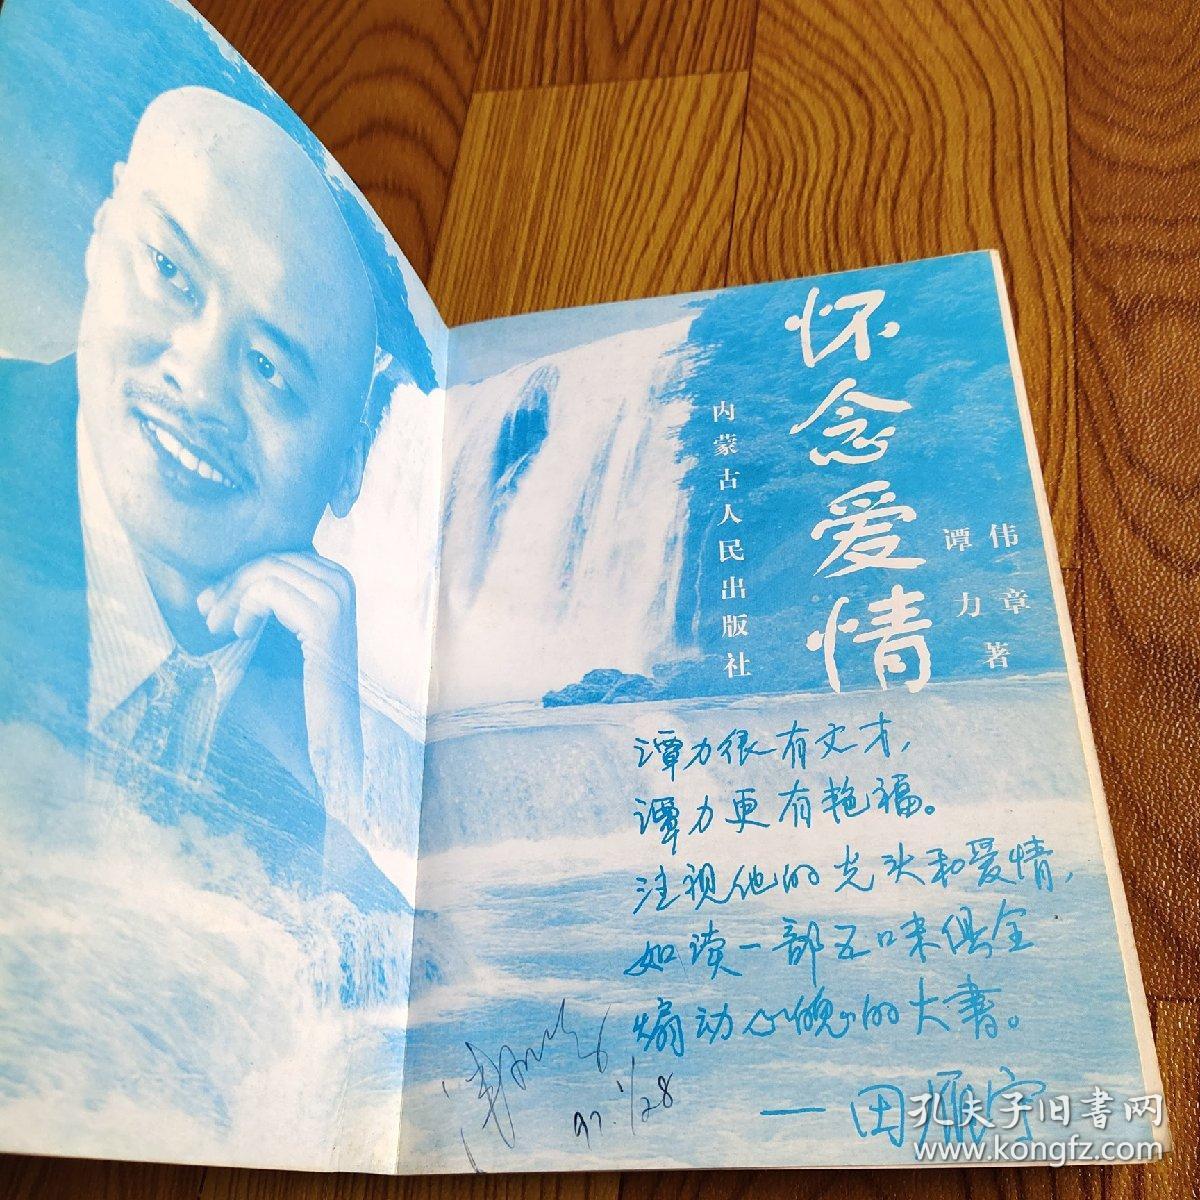 怀念爱情
伟章
谭力 著
内蒙古人民出版社
谭力很有文才，
谭力更有艳福。
注视他的光头和爱情，
如读一部五味俱全
煽动心魄的大书。
——田雁宁
97.1/28
孔夫子旧书网
www.kongfz.com